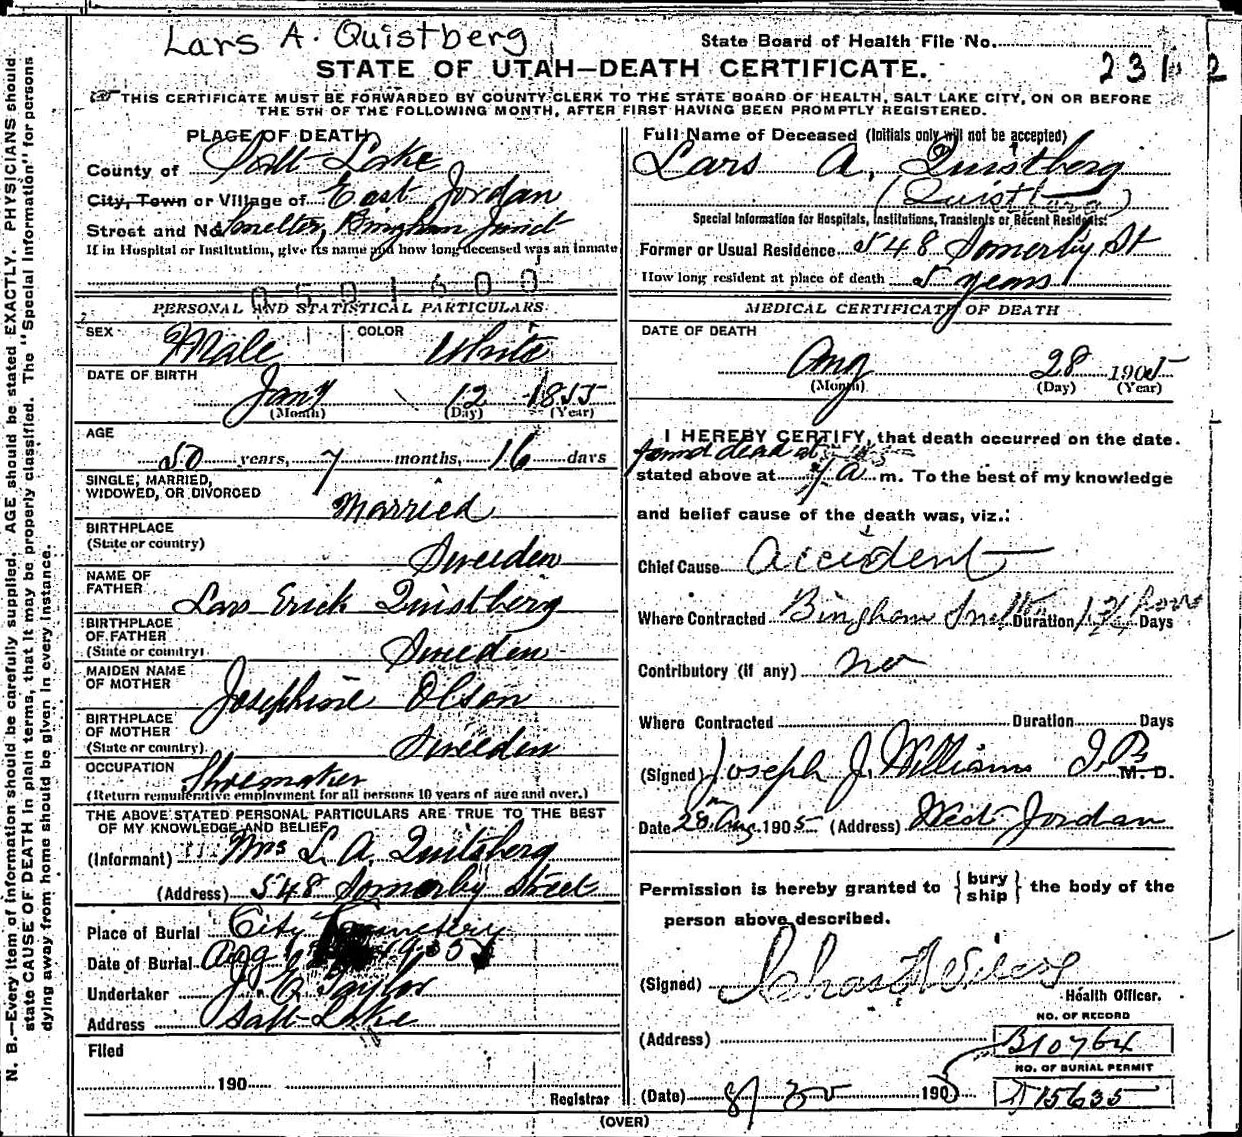 Lars A. Quistberg
State Board of Health File No.
2312
STATE OF UTAH—DEATH CERTIFICATE.
THIS CERTIFICATE MUST BE FORWARDED BY COUNTY CLERK TO THE STATE BOARD OF HEALTH, SALT LAKE CITY, ON OR BEFORE
THE 5TH OF THE FOLLOWING MONTH, AFTER FIRST HAVING BEEN PROMPTLY REGISTERED.
N. B.—Every item of information should be carefully supplied. AGE should be stated EXACTLY. PHYSICIANS should
state CAUSE OF DEATH in plain terms, that it may be properly classified. The "Special Information" for persons
dying away from home should be given in every instance.
PLACE OF DEATH
County of Salt Lake
City, Town or Village of East Jordan
Street and No. Smelter, Bingham Junct
If in Hospital or Institution, give its name and how long deceased was an inmate
0501600
PERSONAL AND STATISTICAL PARTICULARS
2
SEX Male COLOR White
DATE OF BIRTH
Jany 12 1855
(Month) (Day) (Year)
AGE
50 years, 7 months, 16 days
SINGLE, MARRIED,
WIDOWED, OR DIVORCED
Married
BIRTHPLACE
(State or country)
Sweeden
NAME OF
FATHER
Lars Erick Quistberg
BIRTHPLACE
OF FATHER
(State or country)
Sweeden
MAIDEN NAME
OF MOTHER
Josephine Olson
BIRTHPLACE
OF MOTHER
(State or country)
Sweeden
OCCUPATION
Shoemaker
(Return remunerative employment for all persons 10 years of age and over.)
THE ABOVE STATED PERSONAL PARTICULARS ARE TRUE TO THE BEST
OF MY KNOWLEDGE AND BELIEF
(Informant) Mrs L. A. Quitsberg
(Address) 548 Somerby Street
Place of Burial City Cemetery
Date of Burial Aug 1905
Undertaker Taylor
Address Salt Lake
Filed
190
Registrar
Full Name of Deceased (Initials only will not be accepted)
Lars A. Quistberg
(Quistberg)
Special Information for Hospitals, Institutions, Transients or Recent Residents:
Former or Usual Residence 548 Somerby St
How long resident at place of death 5 years
MEDICAL CERTIFICATE OF DEATH
DATE OF DEATH
Aug 28 1905
(Month) (Day) (Year)
I HEREBY CERTIFY, that death occurred on the date
found dead at
stated above at 7 a m. To the best of my knowledge
and belief cause of the death was, viz.:
Chief Cause Accident
Where Contracted Bingham Duration Days
Contributory (if any) no
Where Contracted Duration Days
(Signed) Joseph J. Williams J.P. M. D.
Date 28 Aug. 1905 (Address) West Jordan
Permission is hereby granted to { bury ship } the body of the
person above described.
(Signed)
Health Officer.
NO. OF RECORD
(Address) B10764
NO. OF BURIAL PERMIT
(Date) 8/30 1905 15635
(OVER)